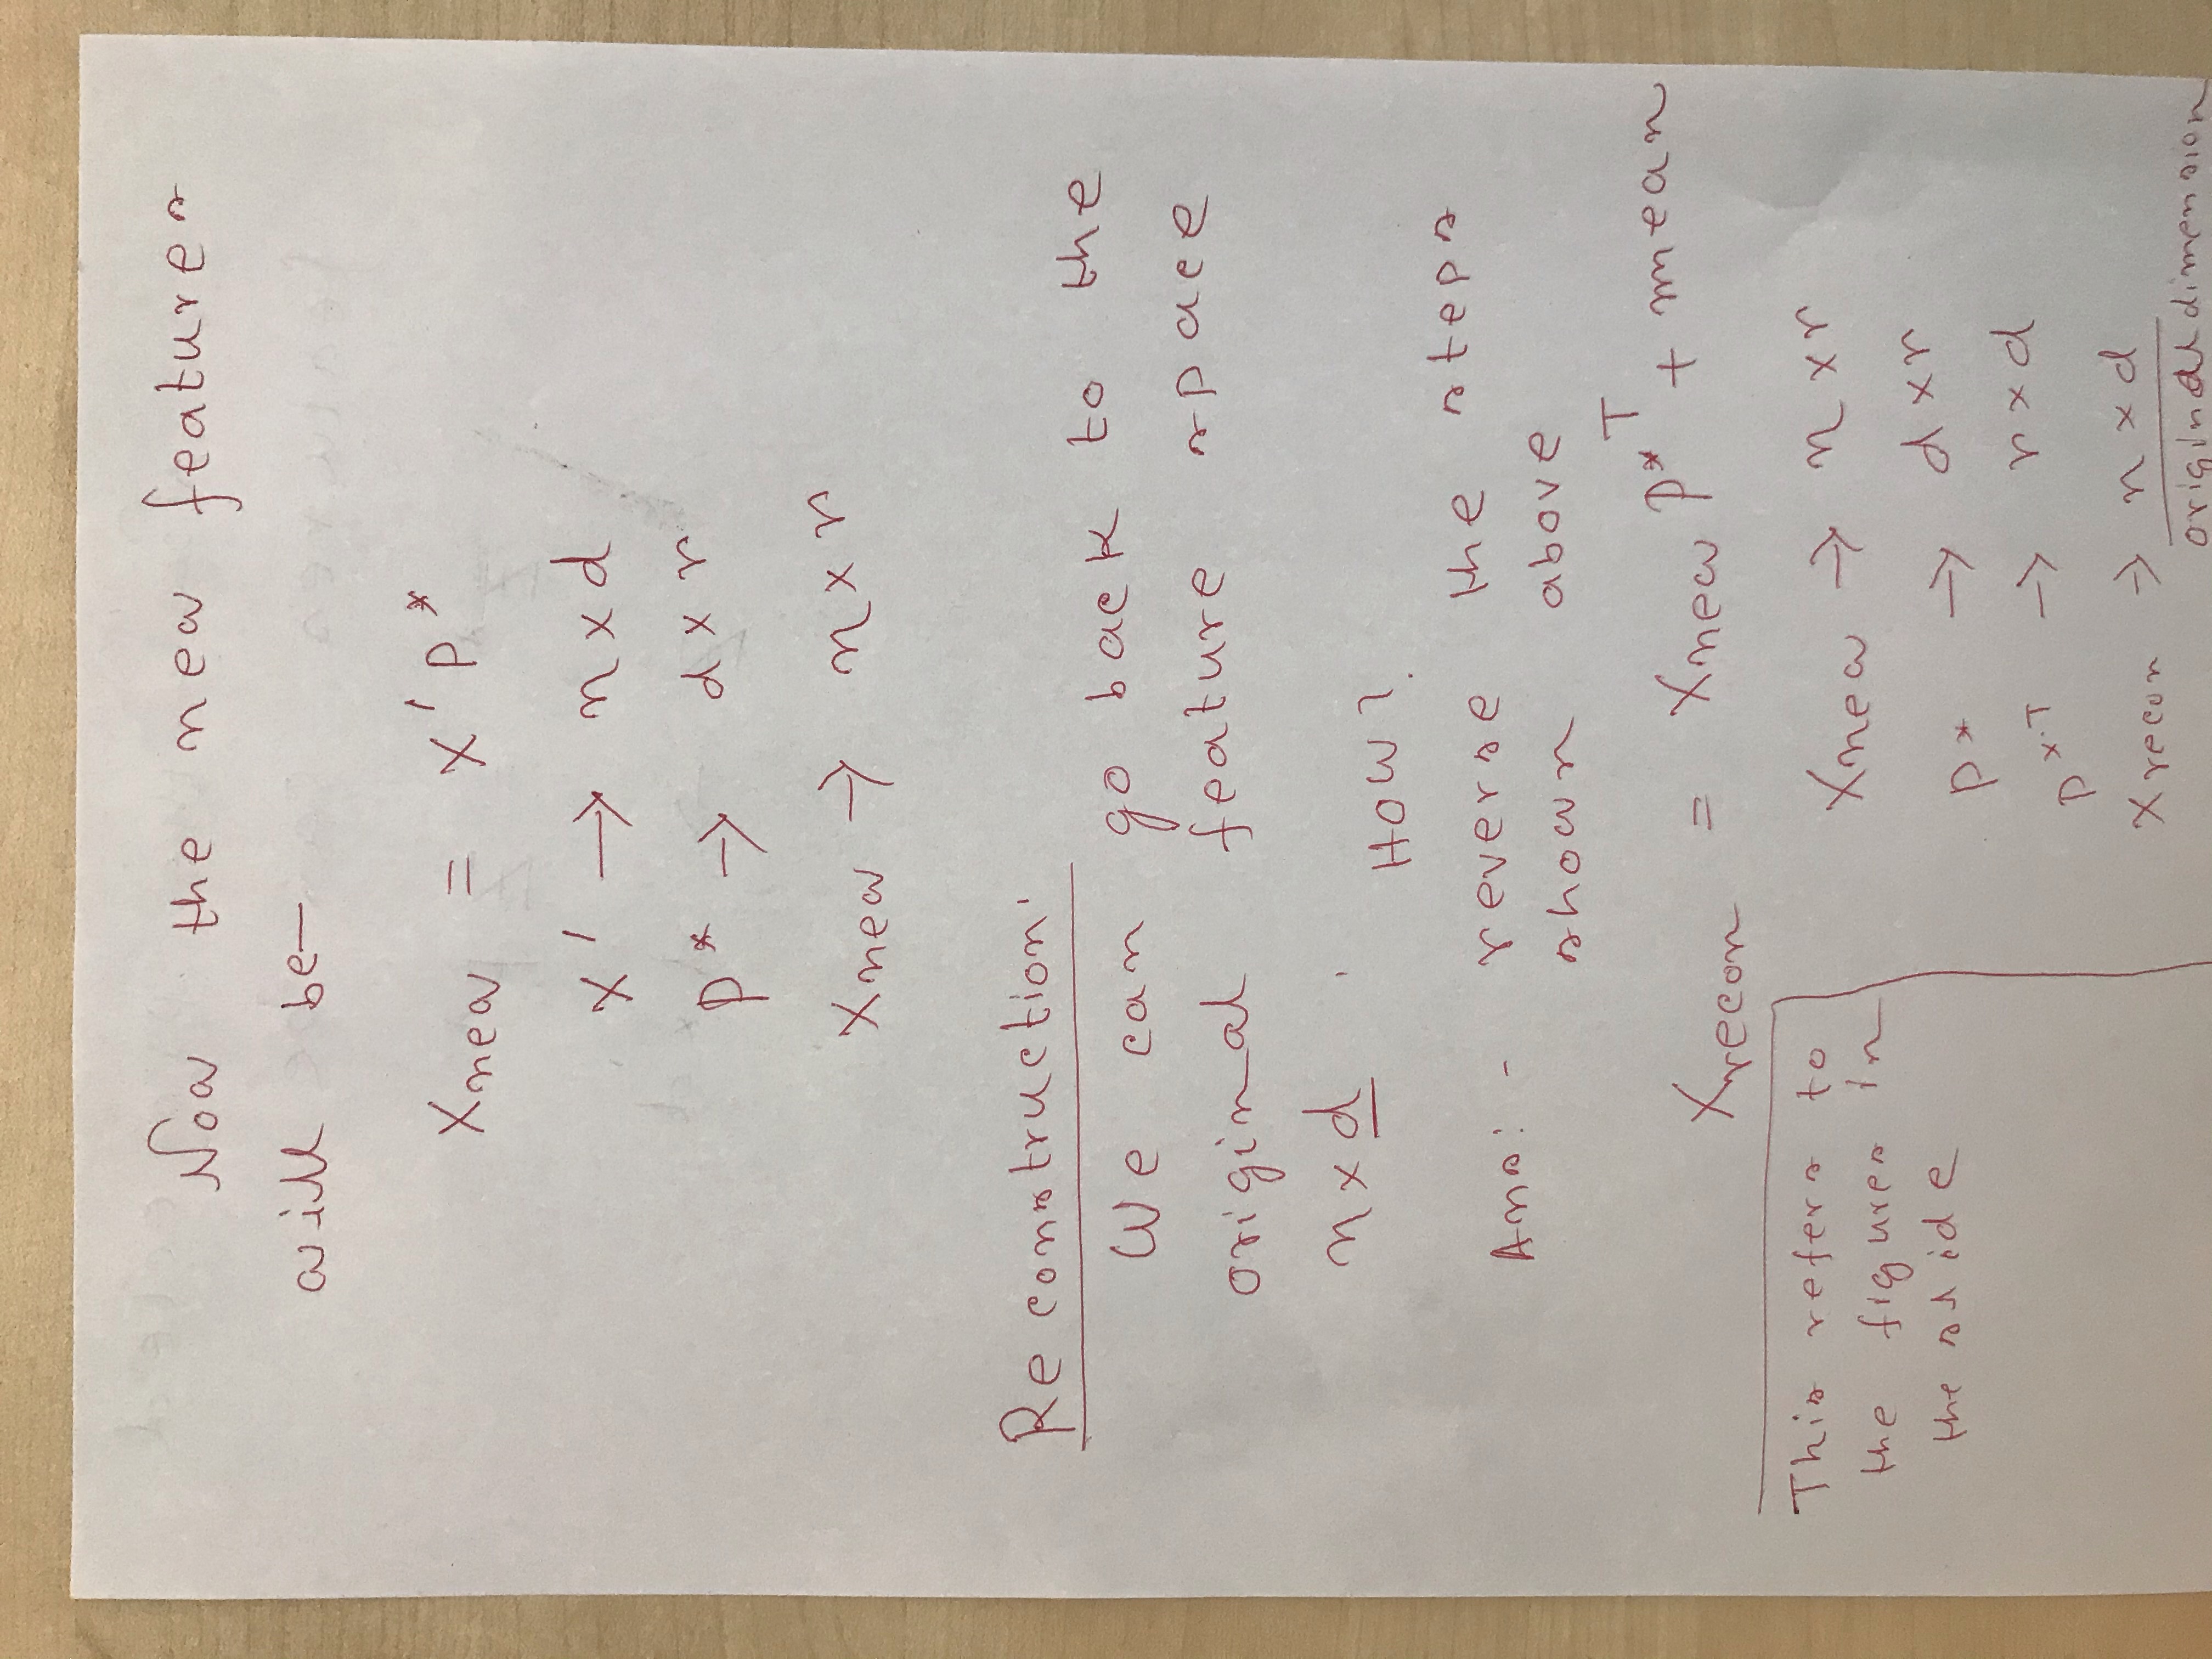 Now the new features
will be—
Xnew = X'P*
X' → n×d
P* → d×r
Xnew → n×r
Reconstruction:
We can go back to the
original feature space
n×d .
HOW?
Ans: - reverse the steps
shown above
Xrecon = Xnew P*ᵀ + mean
This refers to
the figures in
the slide
Xnew → n×r
P* → d×r
P*ᵀ → r×d
Xrecon → n×d
original dimension